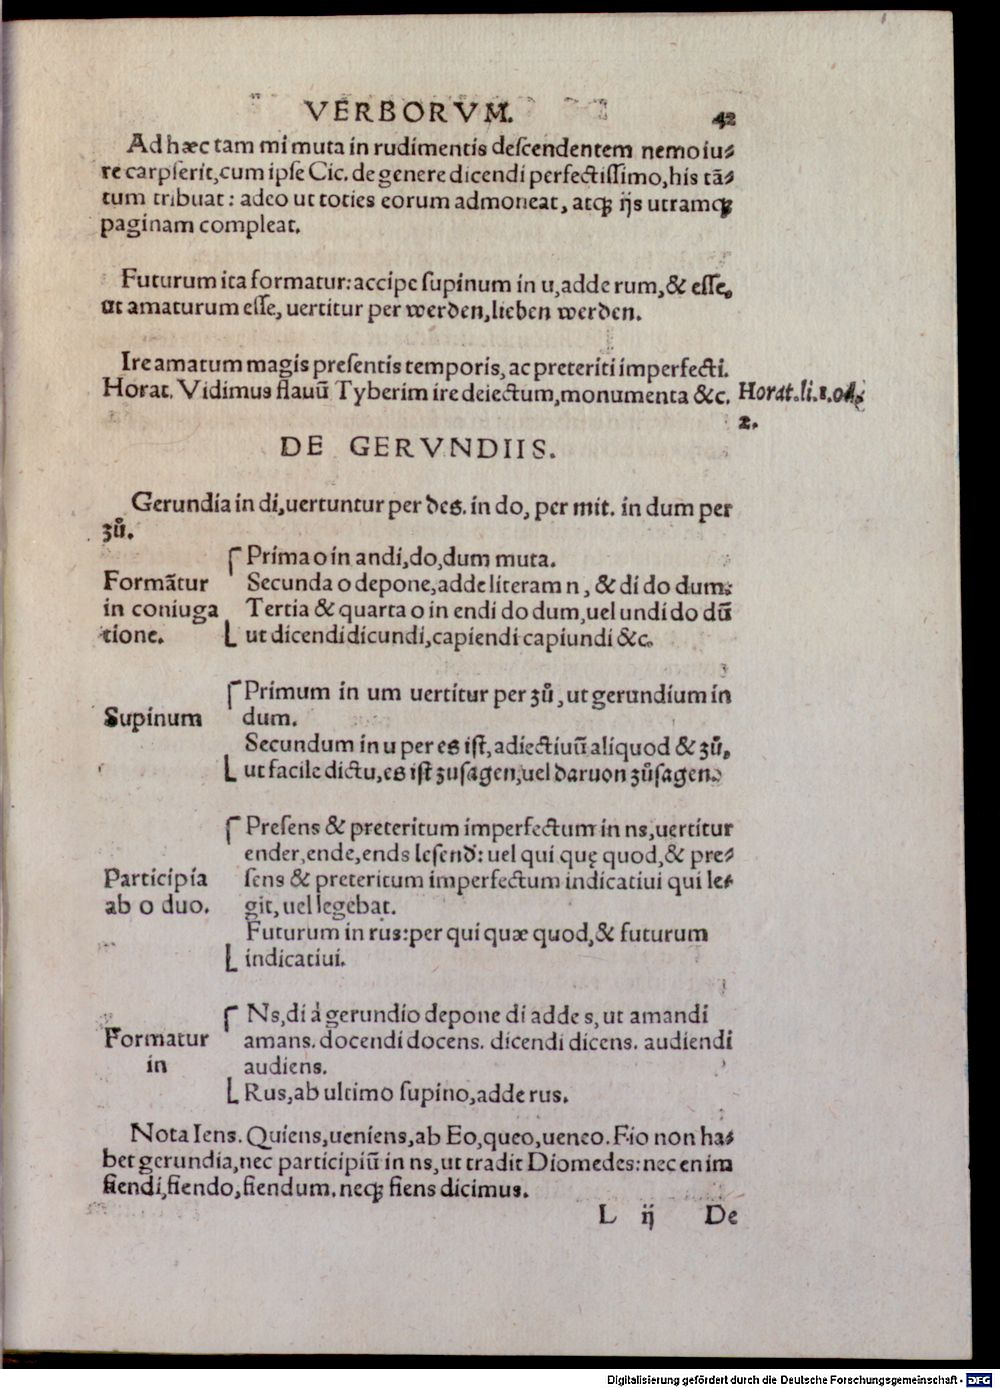 VERBORVM. 42
Ad hæc tam mi muta in rudimentis descendentem nemo iu⸗
re carpserit, cum ipse Cic. de genere dicendi perfectissimo, his tã⸗
tum tribuat: adeo ut toties eorum admoneat, atqꝫ ijs utramqꝫ
paginam compleat.
Futurum ita formatur: accipe supinum in u, adde rum, & esse,
ut amaturum esse, uertitur per werden, lieben werden.
Ire amatum magis presentis temporis, ac preteriti imperfecti.
Horat. Vidimus flauũ Tyberim ire deiectum, monumenta &c. Horat. li. 1. od.
2.
DE GERVNDIIS.
Gerundia in di, uertuntur per des. in do, per mit. in dum per
zů.
Prima o in andi, do, dum muta.
Formãtur Secunda o depone, adde literam n, & di do dum.
in coniuga Tertia & quarta o in endi do dum, uel undi do dũ
tione. ut dicendi dicundi, capiendi capiundi &c.
Primum in um uertitur per zů, ut gerundium in
Supinum dum.
Secundum in u per es ist, adiectiuũ aliquod & zů,
ut facile dictu, es ist zusagen, uel daruon zůsagen.
Presens & preteritum imperfectum in ns, uertitur
ender, ende, ends lesend: uel qui quę quod, & pre⸗
Participia sens & preteritum imperfectum indicatiui qui le⸗
ab o duo. git, uel legebat.
Futurum in rus: per qui quæ quod, & futurum
indicatiui.
Ns, di á gerundio depone di adde s, ut amandi
Formatur amans. docendi docens. dicendi dicens. audiendi
in audiens.
Rus, ab ultimo supino, adde rus.
Nota Iens. Quiens, ueniens, ab Eo, queo, ueneo. Fio non ha⸗
bet gerundia, nec participiũ in ns, ut tradit Diomedes: nec enim
fiendi, fiendo, fiendum. neqꝫ fiens dicimus.
L ij De
Digitalisierung gefördert durch die Deutsche Forschungsgemeinschaft - DFG